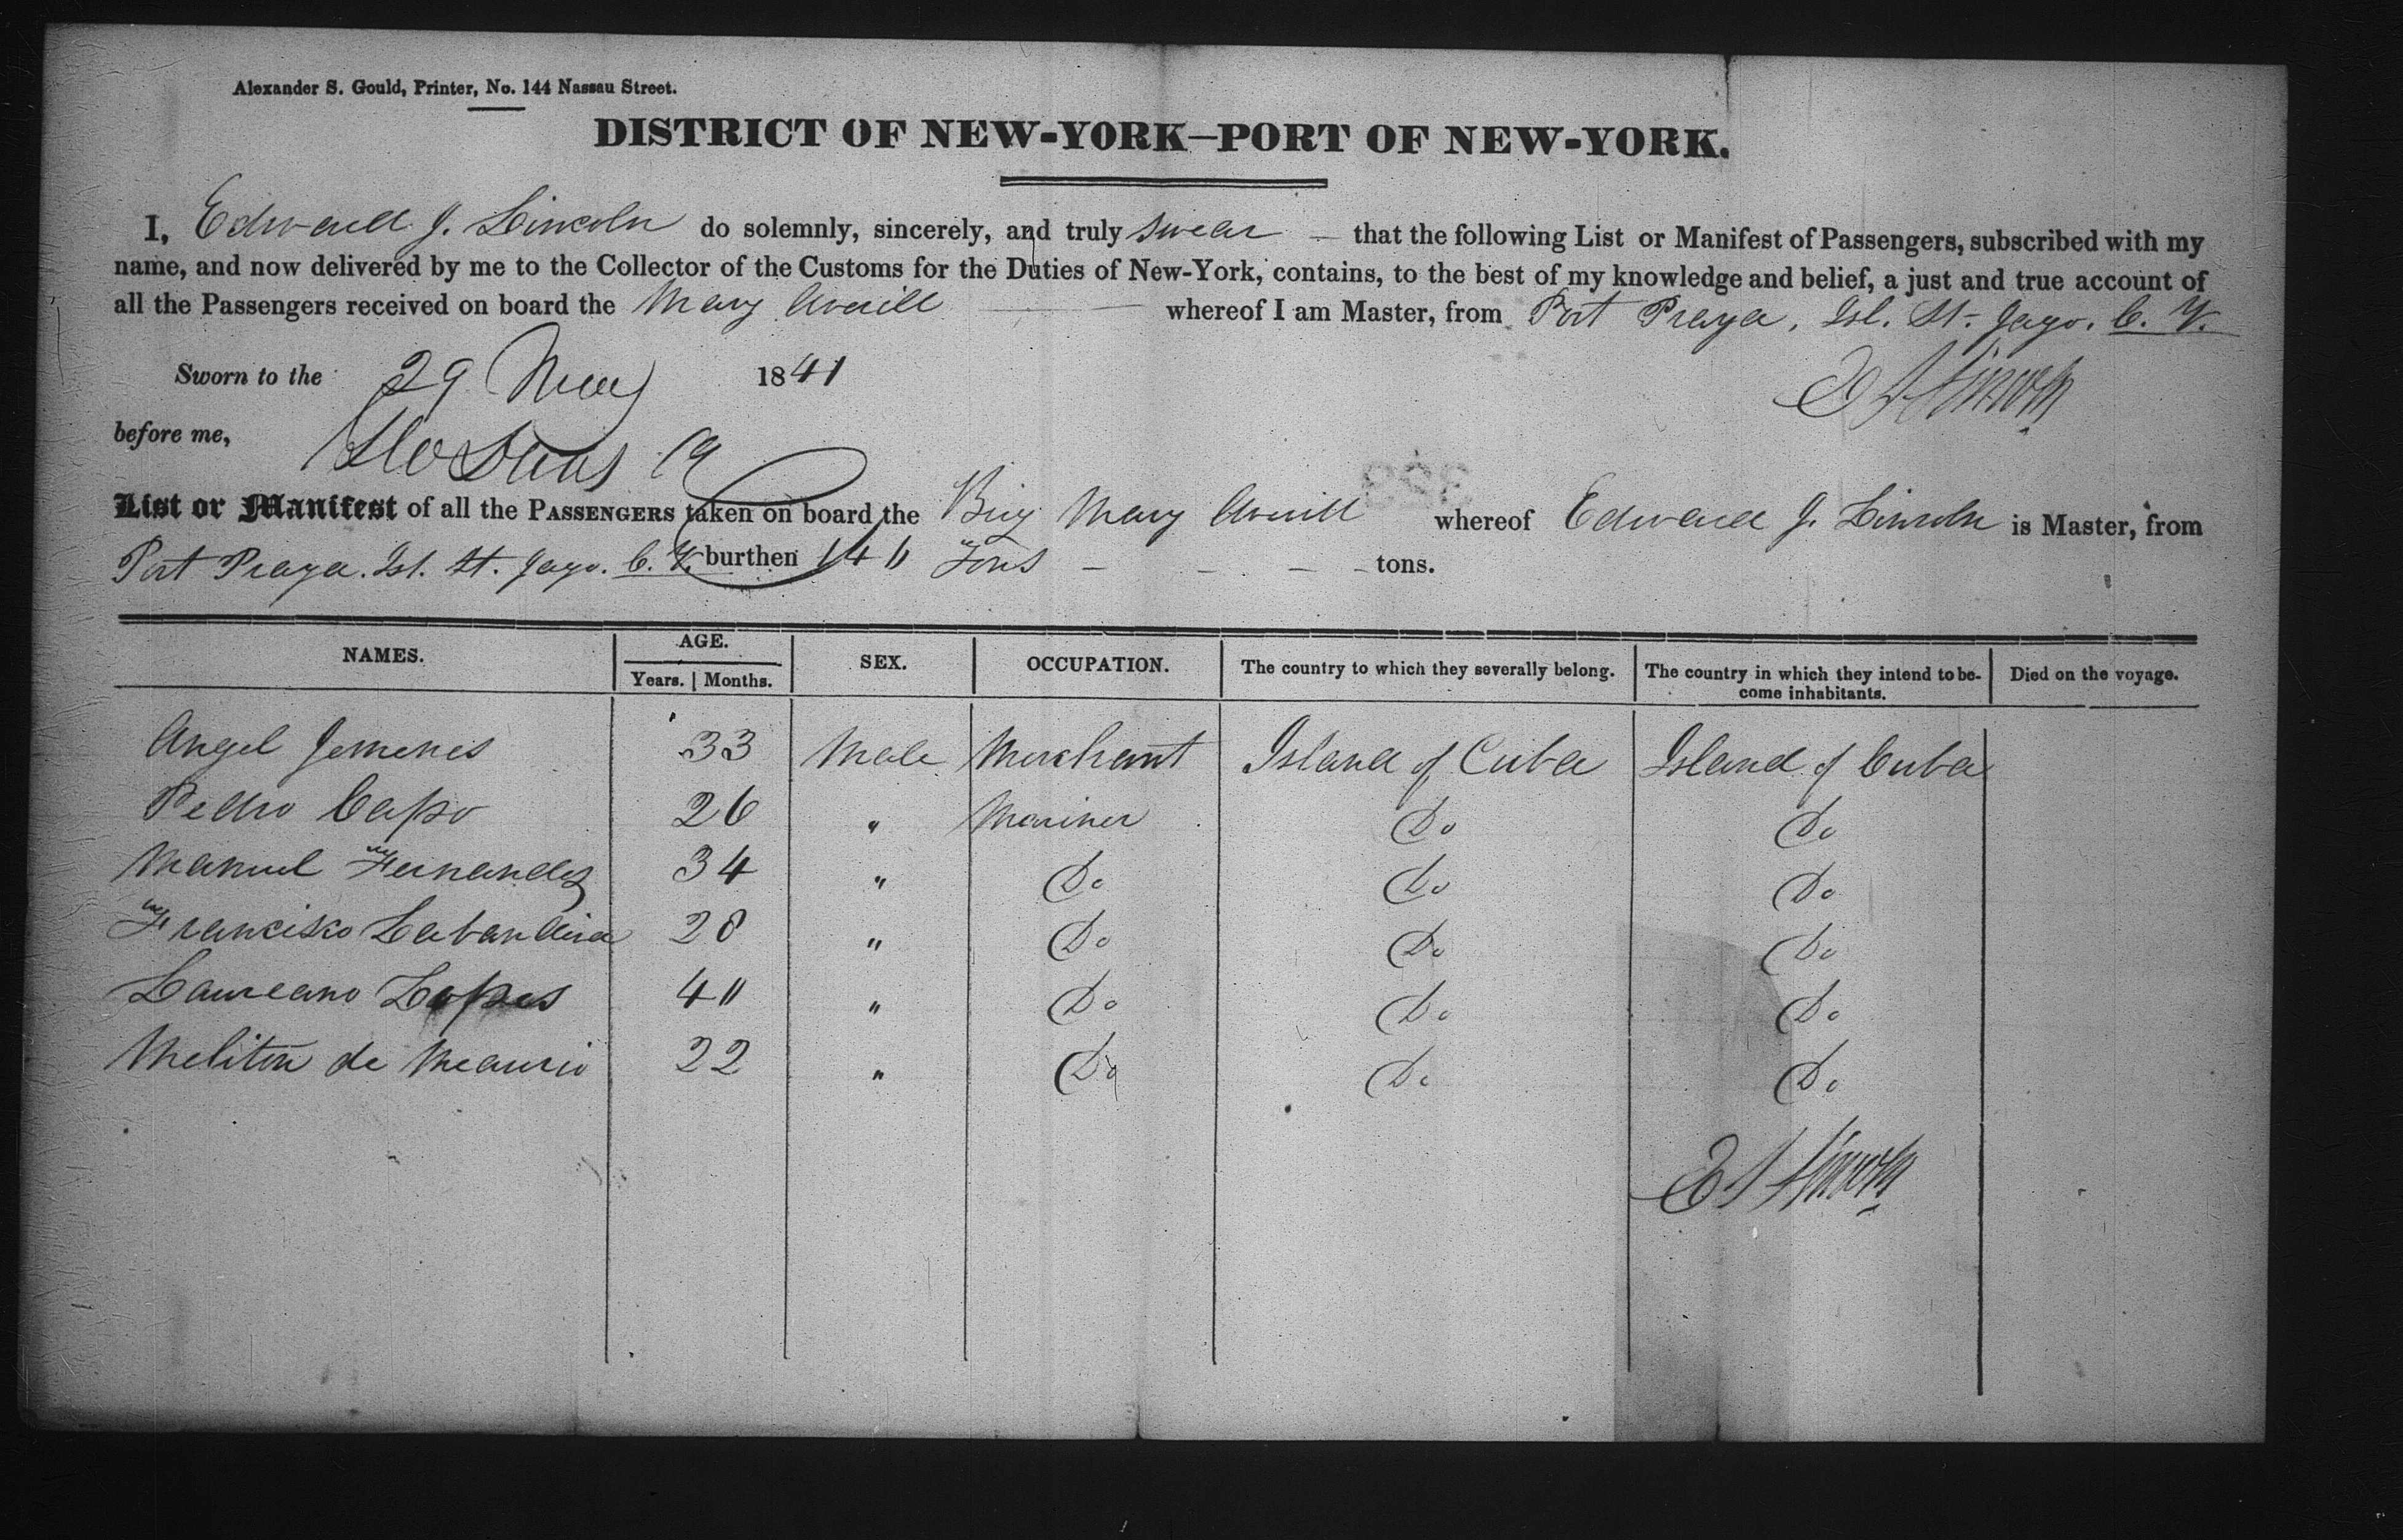 Alexander S. Gould, Printer, No. 144 Nassau Street.
DISTRICT OF NEW-YORK—PORT OF NEW-YORK.
I, Edward J. Lincoln do solemnly, sincerely, and truly swear — that the following List or Manifest of Passengers, subscribed with my
name, and now delivered by me to the Collector of the Customs for the Duties of New-York, contains, to the best of my knowledge and belief, a just and true account of
all the Passengers received on board the Mary Averill whereof I am Master, from Port Praya, Isl. St. Jago. C. V.
Sworn to the 29 May 1841 E J Lincoln
before me,
List or Manifest of all the PASSENGERS taken on board the Brig Mary Averill whereof Edward J. Lincoln is Master, from
Port Praya. Isl. St. Jago. C. V. burthen 140 Tons — — — — tons.
NAMES. AGE. Years. | Months. SEX. OCCUPATION. The country to which they severally belong. The country in which they intend to become inhabitants. Died on the voyage.
Angel Jemenes 33 Male Merchant Island of Cuba Island of Cuba
Pedro Capo 26 " Mariner Do Do
Manuel Fernandez 34 " Do Do Do
Francisco Labandeira 28 " Do Do Do
Laureano Lopes 40 " Do Do Do
Meliton de Meaurio 22 " Do Do Do
E J Lincoln